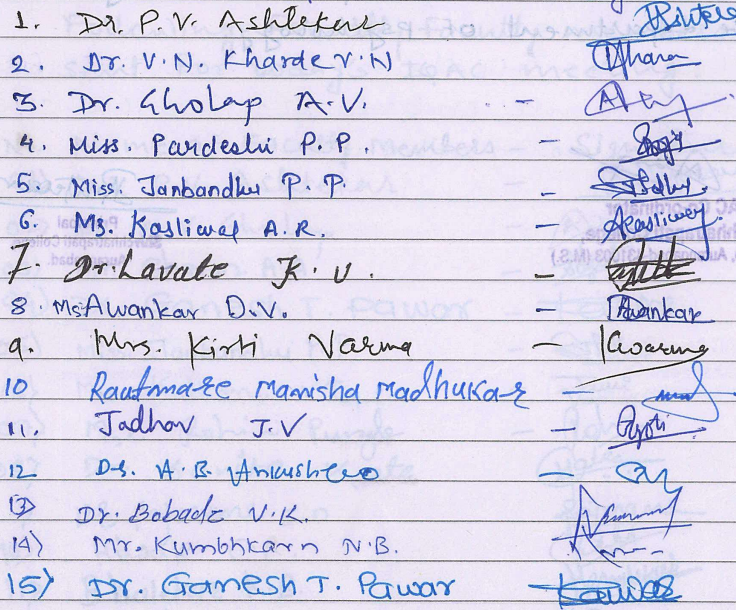 1. Dr. P. V. Ashtekar
2. Dr. V. N. Kharde V. N
3. Dr. Gholap A. V. -
4. Miss. Pardeshi P. P. -
5. Miss. Janbandhu P. P. -
6. Ms. Kasliwal A. R. - Akasliwal
7. Dr. Lavate K. U. -
8. Ms. Awankar D. V. - Awankar
9. Mrs. Kirti Varma - Kvarma
10 Rautmare Manisha Madhukar -
11. Jadhav J. V - Jyoti
12 Dr. A. B. -
13 Dr. Bobade V. K.
14) Mr. Kumbhkarn N. B.
15) Dr. Ganesh T. Pawar